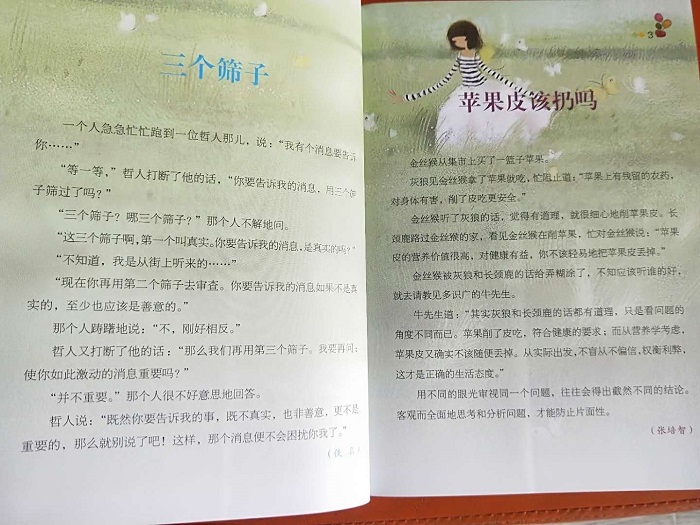 三个筛子
一个人急急忙忙跑到一位哲人那儿，说：“我有个消息要告诉
你……”
“等一等，”哲人打断了他的话，“你要告诉我的消息，用三个筛
子筛过了吗？”
“三个筛子？哪三个筛子？”那个人不解地问。
“这三个筛子啊，第一个叫真实。你要告诉我的消息，是真实的吗？”
“不知道，我是从街上听来的……”
“现在你再用第二个筛子去审查。你要告诉我的消息如果不是真
实的，至少也应该是善意的。”
那个人踌躇地说：“不，刚好相反。”
哲人又打断了他的话：“那么我们再用第三个筛子。我要再问：
使你如此激动的消息重要吗？”
“并不重要。”那个人很不好意思地回答。
哲人说：“既然你要告诉我的事，既不真实，也非善意，更不是
重要的，那么就别说了吧！这样，那个消息便不会困扰你我了。”
（佚 名）
3
苹果皮该扔吗
金丝猴从集市上买了一篮子苹果。
灰狼见金丝猴拿了苹果就吃，忙阻止道：“苹果上有残留的农药，
对身体有害，削了皮吃更安全。”
金丝猴听了灰狼的话，觉得有道理，就很细心地削苹果皮。长
颈鹿路过金丝猴的家，看见金丝猴在削苹果，忙对金丝猴说：“苹果
皮的营养价值很高，对健康有益，你不该轻易地把苹果皮丢掉。”
金丝猴被灰狼和长颈鹿的话给弄糊涂了，不知应该听谁的好，
就去请教见多识广的牛先生。
牛先生道：“其实灰狼和长颈鹿的话都有道理，只是看问题的
角度不同而已。苹果削了皮吃，符合健康的要求；而从营养学考虑，
苹果皮又确实不该随便丢掉。从实际出发，不盲从不偏信，权衡利弊，
这才是正确的生活态度。”
用不同的眼光审视同一个问题，往往会得出截然不同的结论。
客观而全面地思考和分析问题，才能防止片面性。
（张培智）